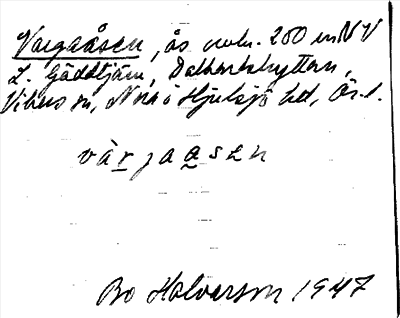 Vargaåsen, ås omkr. 250 m NV
L. Gäddtjärn, Dalkarlshyttan,
Vikers sn, Nora o Hjulsjö hd, Ör. l.
vàrjaasen
Bo Halvarson 1947